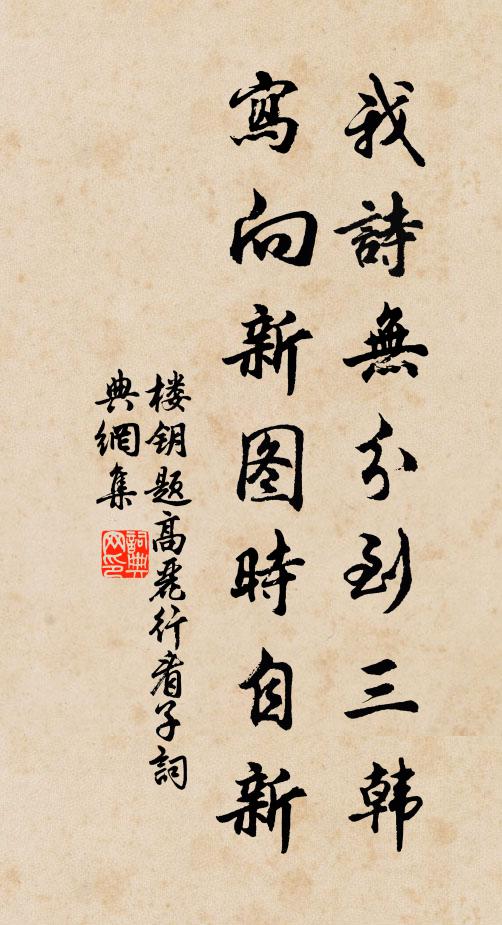 我詩無分到三韩
寫向新图時自新
楼钥题高麗行看子詞
典網集
詞典
网印